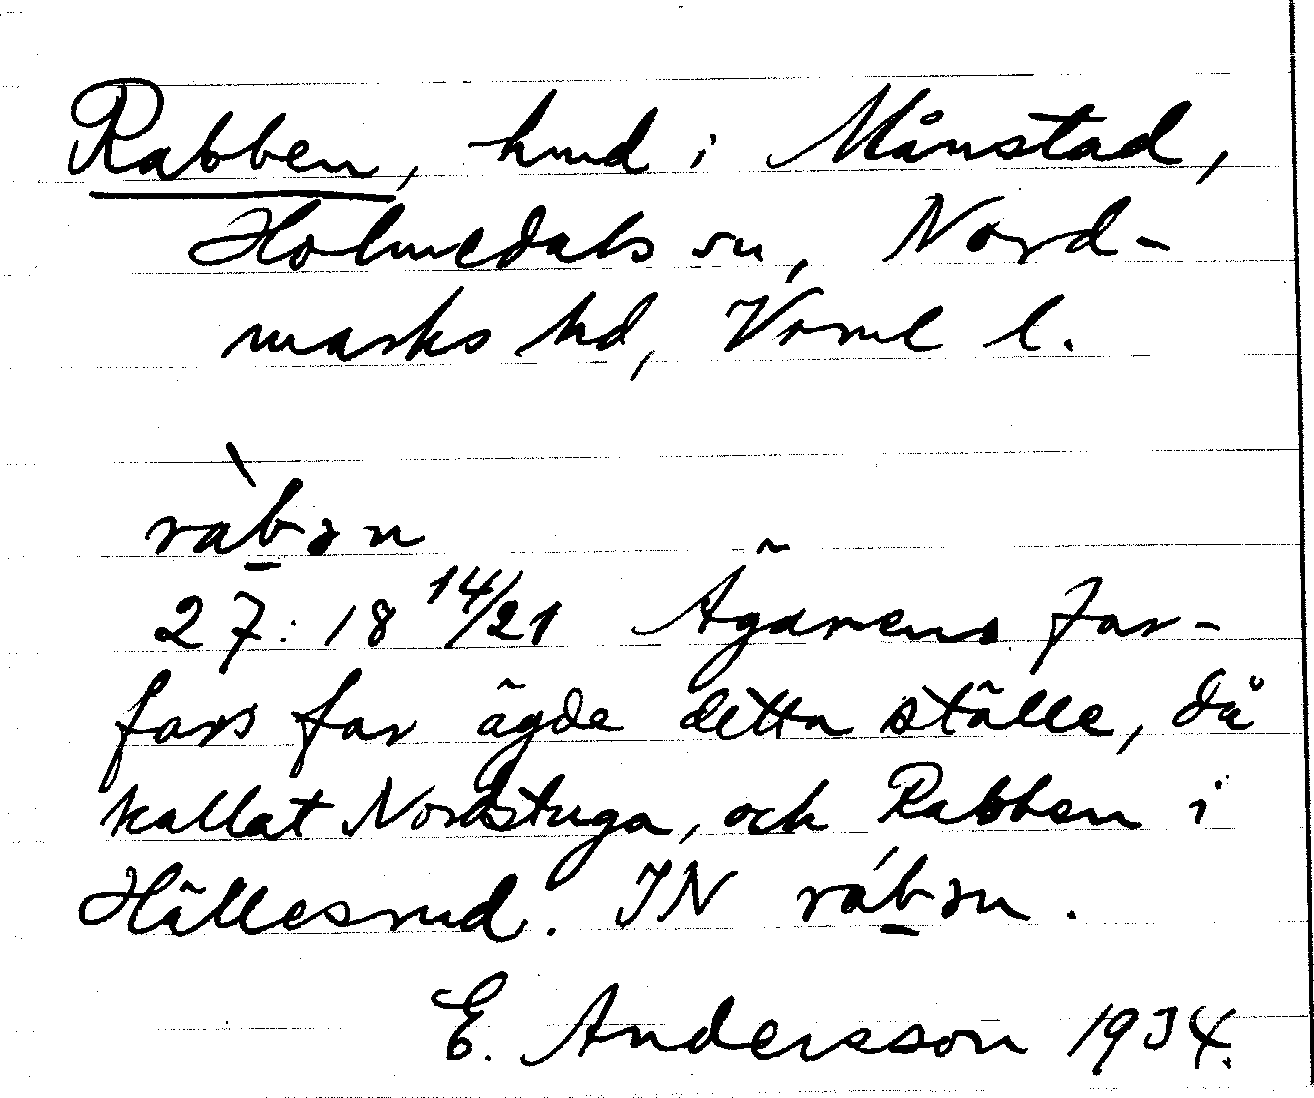 Rabben, hmd i Månstad,
Holmedals sn, Nord-
marks hd, Vrml l.
ràb̲ən
27:18 14/21 Ägarens far-
fars far ägde detta ställe, då
kallat Nordstuga, och Rabben i
Hällesrud. IN ráb̲ən.
E. Andersson 1934.